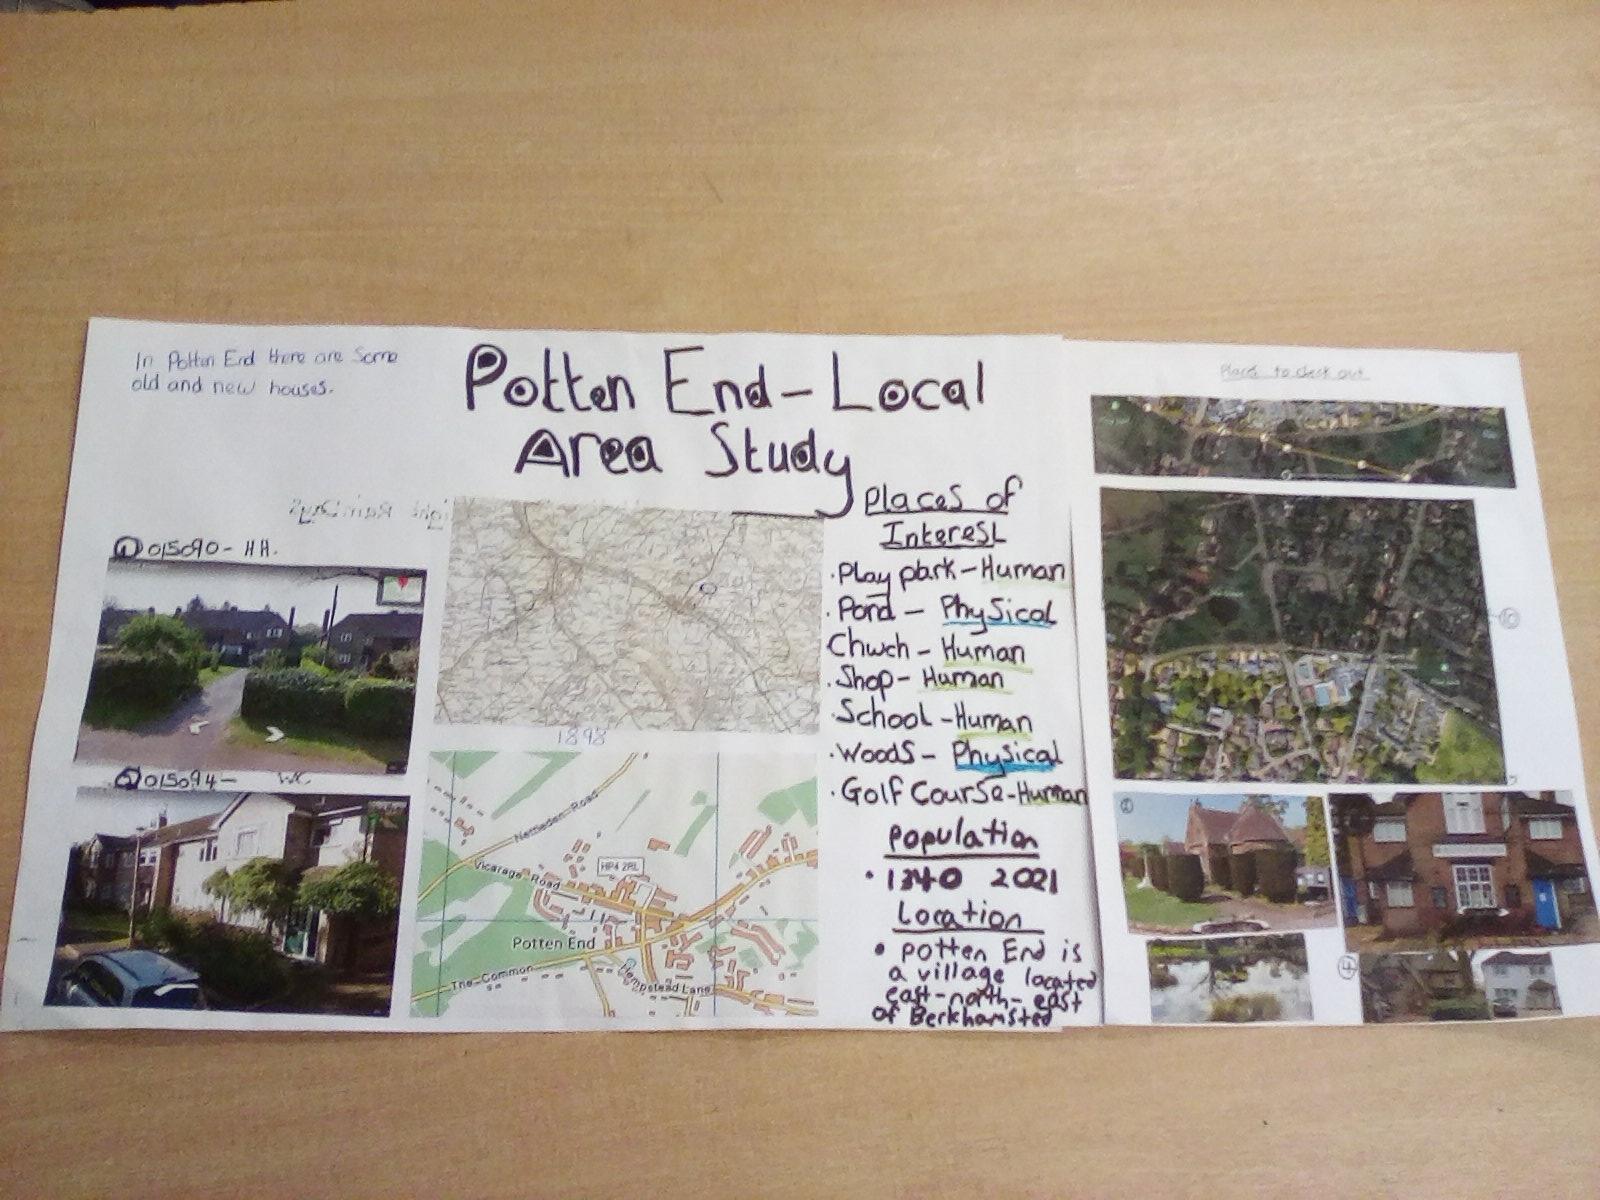 In Potten End there are some
old and new houses.
Potten End - Local
Area Study
1 015090 - HH.
2 015094 - WC
1898
Nettleden Road
Vicarage Road
HP4 2RL
Potten End
The Common
Hempstead Lane
Places of
Interest
· Play park - Human
· Pond - Physical
Church - Human
· Shop - Human
· School - Human
· Woods - Physical
· Golf Course - Human
Population
• 1340 2021
Location
• Potten End is
a village located
east-north-east
of Berkhamsted
Places to check out
4